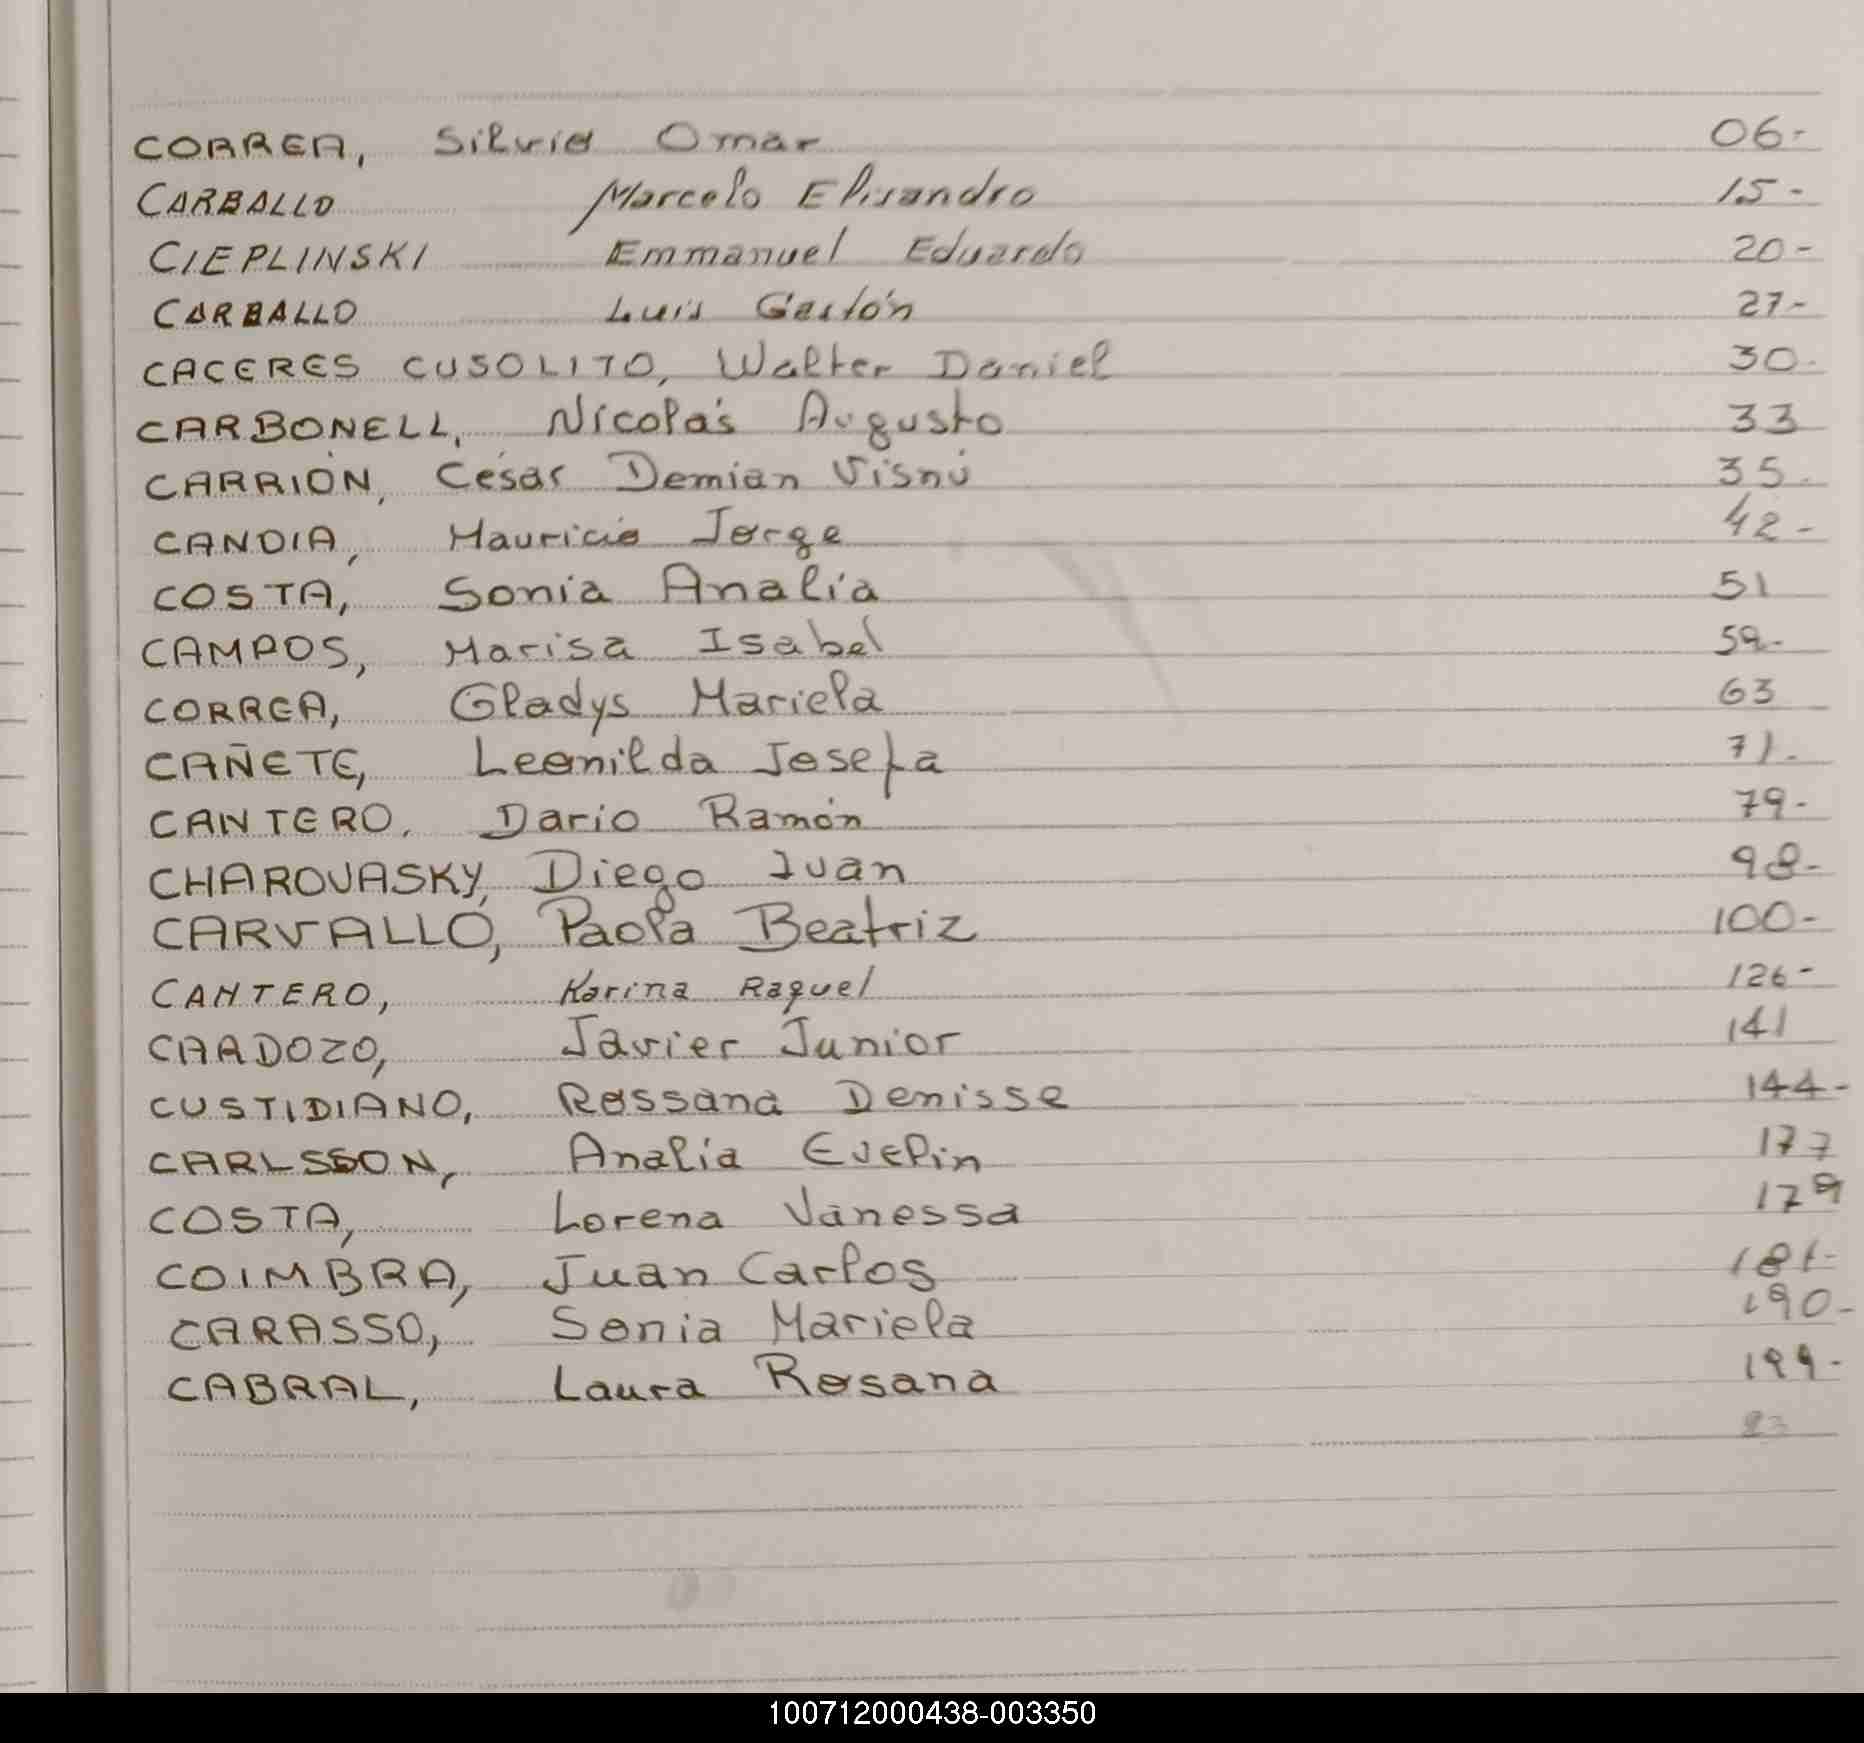 CORREA, Silvio Omar 06-
CARBALLO Marcelo Elisandro 15-
CIEPLINSKI Emmanuel Eduardo 20-
CARBALLO Luis Gastón 27-
CACERES CUSOLITO, Walter Daniel 30-
CARBONELL, Nicolás Augusto 33
CARRIÓN, César Demian Visnú 35-
CANDIA, Mauricio Jorge 42-
COSTA, Sonia Analía 51
CAMPOS, Marisa Isabel 59-
CORREA, Gladys Mariela 63
CAÑETE, Leonilda Josefa 71-
CANTERO, Dario Ramón 79-
CHAROVASKY, Diego Iván 98-
CARVALLO, Paola Beatriz 100-
CANTERO, Karina Raquel 126-
CARDOZO, Javier Junior 141
CUSTIDIANO, Rossana Denisse 144-
CARLSSON, Analía Evelin 177
COSTA, Lorena Vanessa 179
COIMBRA, Juan Carlos 181-
CARASSO, Sonia Mariela 190-
CABRAL, Laura Rosana 199-
23
100712000438-003350